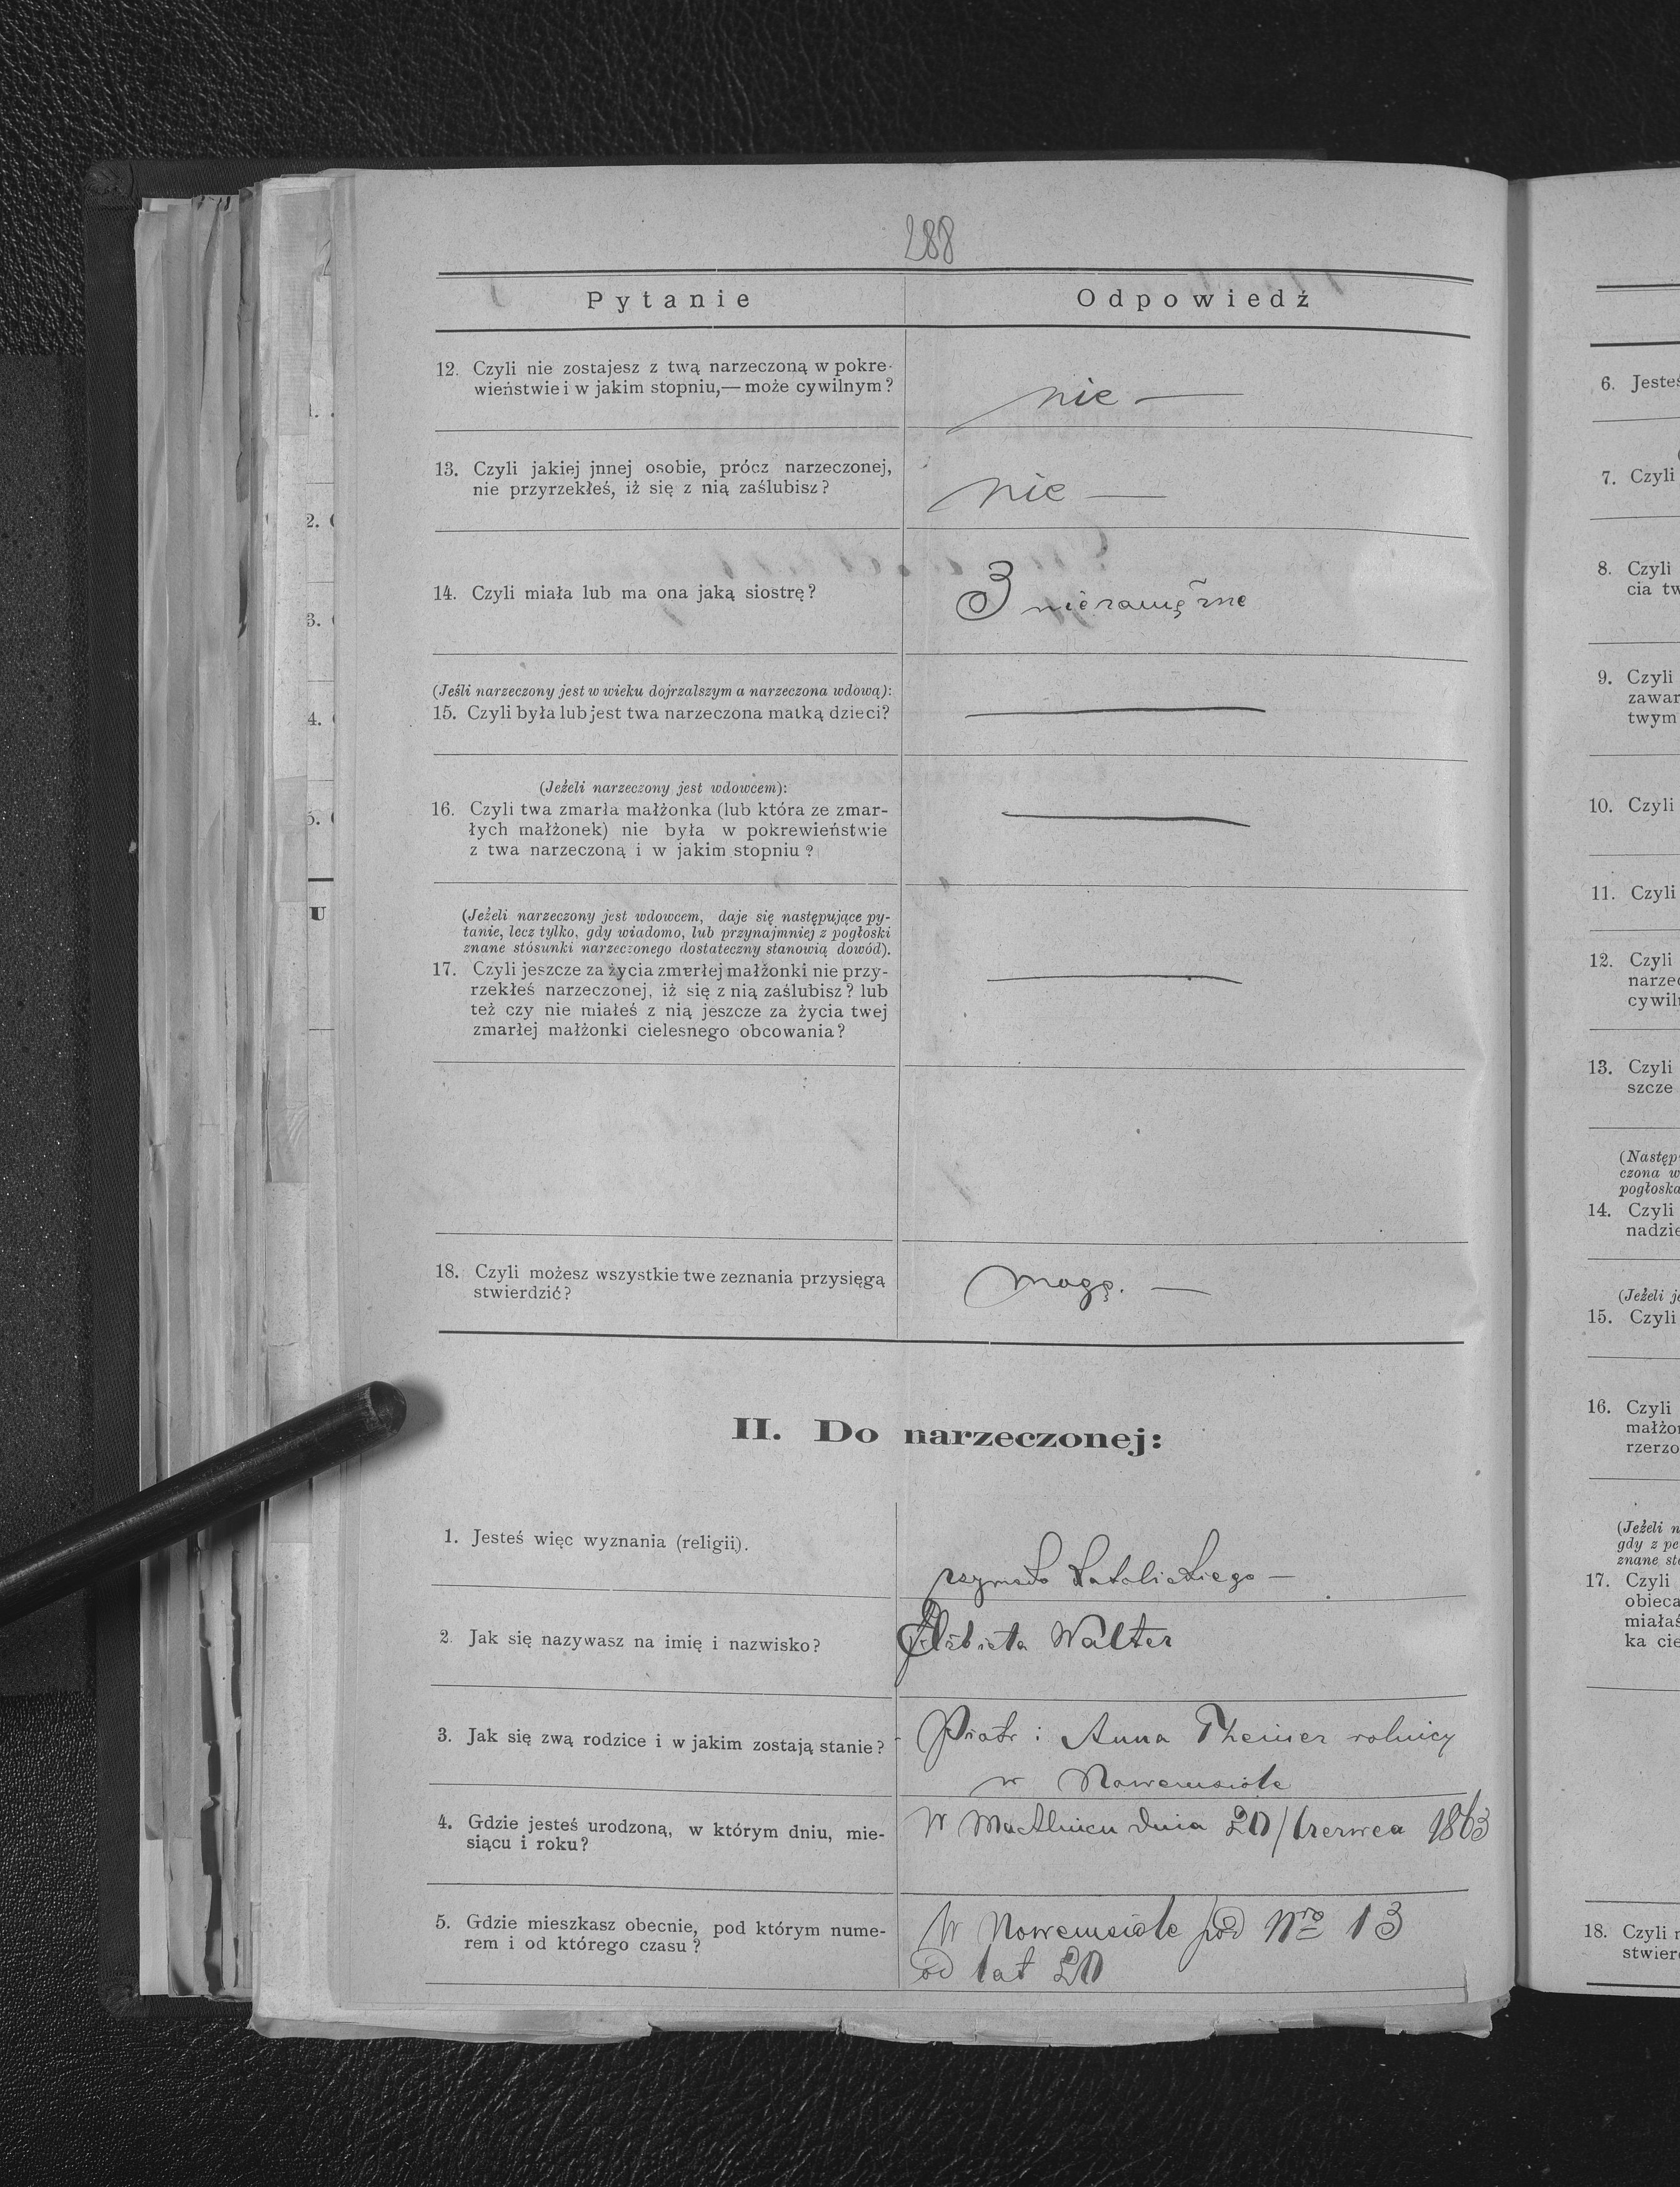 288
Pytanie
Odpowiedź
12. Czyli nie zostajesz z twą narzeczoną w pokre-
wieństwie i w jakim stopniu,— może cywilnym?
nie —
13. Czyli jakiej jnnej osobie, prócz narzeczonej,
nie przyrzekłeś, iż się z nią zaślubisz?
nie —
14. Czyli miała lub ma ona jaką siostrę?
3 niezamężne
(Jeśli narzeczony jest w wieku dojrzalszym a narzeczona wdową):
15. Czyli była lub jest twa narzeczona matką dzieci?
—
(Jeżeli narzeczony jest wdowcem):
16. Czyli twa zmarła małżonka (lub która ze zmar-
łych małżonek) nie była w pokrewieństwie
z twa narzeczoną i w jakim stopniu?
—
(Jeżeli narzeczony jest wdowcem, daje się następujące py-
tanie, lecz tylko, gdy wiadomo, lub przynajmniej z pogłoski
znane stósunki narzeczonego dostateczny stanowią dowód).
17. Czyli jeszcze za życia zmerłej małżonki nie przy-
rzekłeś narzeczonej, iż się z nią zaślubisz? lub
też czy nie miałeś z nią jeszcze za życia twej
zmarłej małżonki cielesnego obcowania?
—
18. Czyli możesz wszystkie twe zeznania przysięgą
stwierdzić?
mogę. —
II. Do narzeczonej:
1. Jesteś więc wyznania (religii).
rzymsko katolickiego —
2. Jak się nazywasz na imię i nazwisko?
Elżbieta Walter
3. Jak się zwą rodzice i w jakim zostają stanie?
Piotr i Anna Theiser rolnicy
w Nowemsiole
4. Gdzie jesteś urodzoną, w którym dniu, mie-
siącu i roku?
W dnia 20/Czerwca 1863
5. Gdzie mieszkasz obecnie, pod którym nume-
rem i od którego czasu?
W Nowemsiole pod Nro 13
od lat 20
1.
2.
3.
4.
5.
U
6. Jesteś
7. Czyli
8. Czyli
cia tw
9. Czyli
zawar
twym
10. Czyli
11. Czyli
12. Czyli
narzec
cywiln
13. Czyli
szcze
(Następ
czona w
pogłoska
14. Czyli
nadzie
(Jeżeli je
15. Czyli
16. Czyli
małżon
rzerzo
(Jeżeli n
gdy z pe
znane sto
17. Czyli
obieca
miałaś
ka cie
18. Czyli n
stwierd